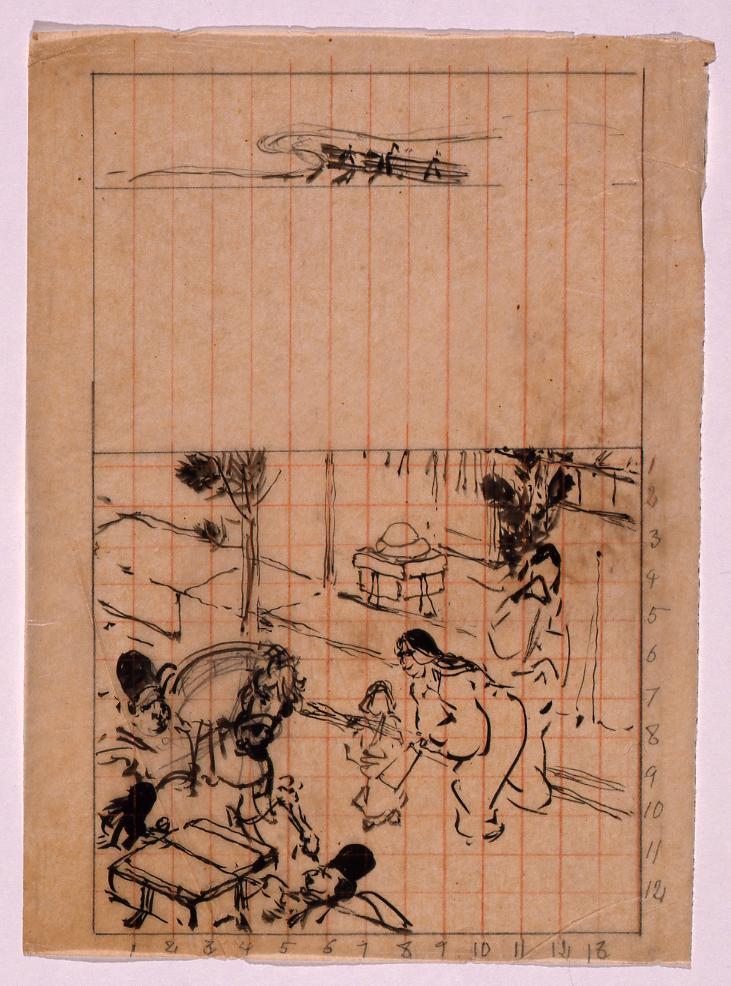 1
2
3
4
5
6
7
8
9
10
11
12
1 2 3 4 5 6 7 8 9 10 11 12 13